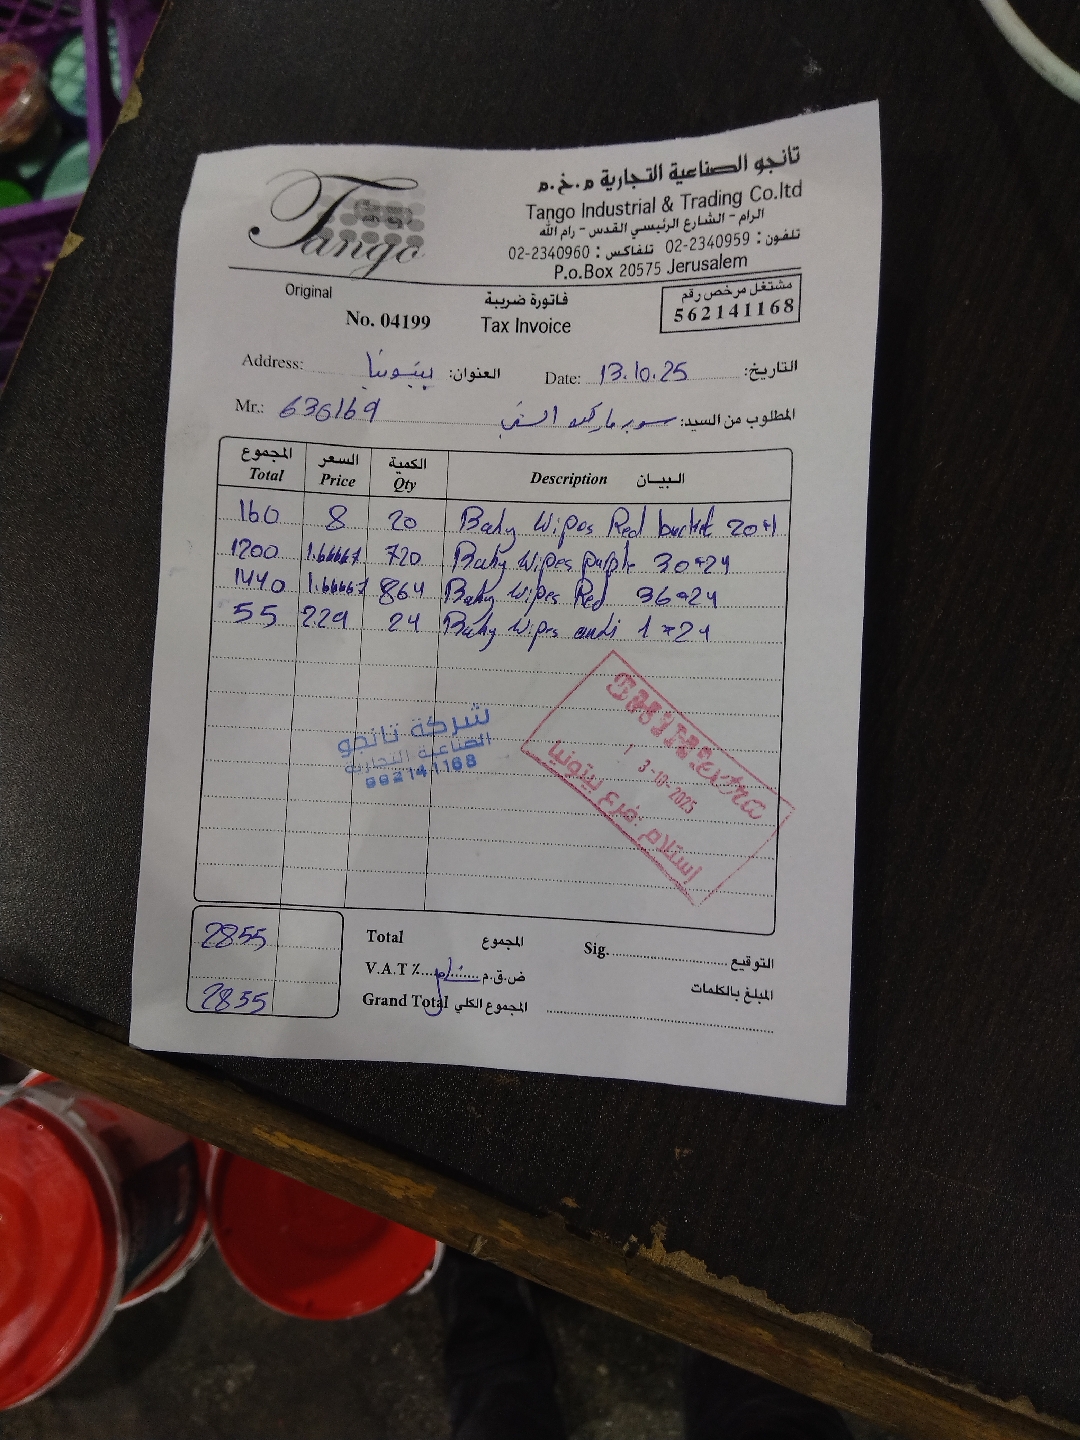 Tango
تانجو الصناعية التجارية م.خ.م
Tango Industrial & Trading Co.ltd
الرام - الشارع الرئيسي القدس - رام الله
تلفون : 02-2340959 تلفاكس : 02-2340960
P.o.Box 20575 Jerusalem
Original
فاتورة ضريبة
مشتغل مرخص رقم
562141168
No. 04199
Tax Invoice
Address: بيتونيا العنوان:
Date: 13.10.25 التاريخ:
Mr.: 636169
المطلوب من السيد: سوبر ماركت
المجموع السعر الكمية البيــان
Total Price Qty Description
160 8 20 Baby Wipes Red bucket 20*1
1200 1.66667 720 Baby Wipes purple 30*24
1440 1.66667 864 Baby Wipes Red 36*24
55 2.29 24 Baby Wipes 1*24
شركة تانجو
الصناعية التجارية
562141168
extra
13-10-2025
إستلام :فرع بيتونيا
2855 Total المجموع
Sig. التوقيع
V.A.T ٪ ض.ق.م
المبلغ بالكلمات
2855 Grand Total المجموع الكلي